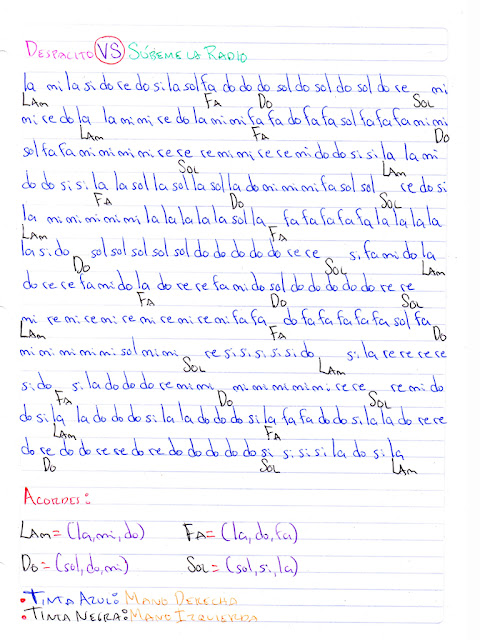 DESPACITO VS SÚBEME LA RADIO
la mi la si do re do si la sol fa do do do sol do sol do sol do re mi
LAm FA DO SOL
mi re do la la mi mi re do la mi mi fa fa do fa fa sol fa fa fa mi mi
LAm FA DO
sol fa fa mi mi mi mi re re re mi mi re re mi do do si si la la mi
SOL LAm
do do si si la la sol la sol la sol la do mi mi mi fa sol sol re do si
FA DO SOL
la mi mi mi mi mi la la la la la sol la fa fa fa fa fa la la la la
LAm FA
la si do sol sol sol sol sol do do do do do re re si fa mi do la
DO SOL LAm
do re re fa mi do la do re re fa mi do sol do do do do do re re
FA DO SOL
mi re mi re mi re mi re mi re mi fa fa do fa fa fa fa fa sol fa
LAm FA DO
mi mi mi mi mi sol mi mi re si si si si si do si la re re re re
SOL LAm
si do si la do do do re mi mi mi mi mi mi mi re re re mi do
FA DO SOL
do si la la do do do si la la do do do si la fa fa do do si la la do re re
LAm FA
do re do do re re do re do do do do do si si si si la do si la
DO SOL LAm
ACORDES:
LAm = (la, mi, do) FA = (la, do, fa)
DO = (sol, do, mi) SOL = (sol, si, la)
• TINTA AZUL: MANO DERECHA
• TINTA NEGRA: MANO IZQUIERDA